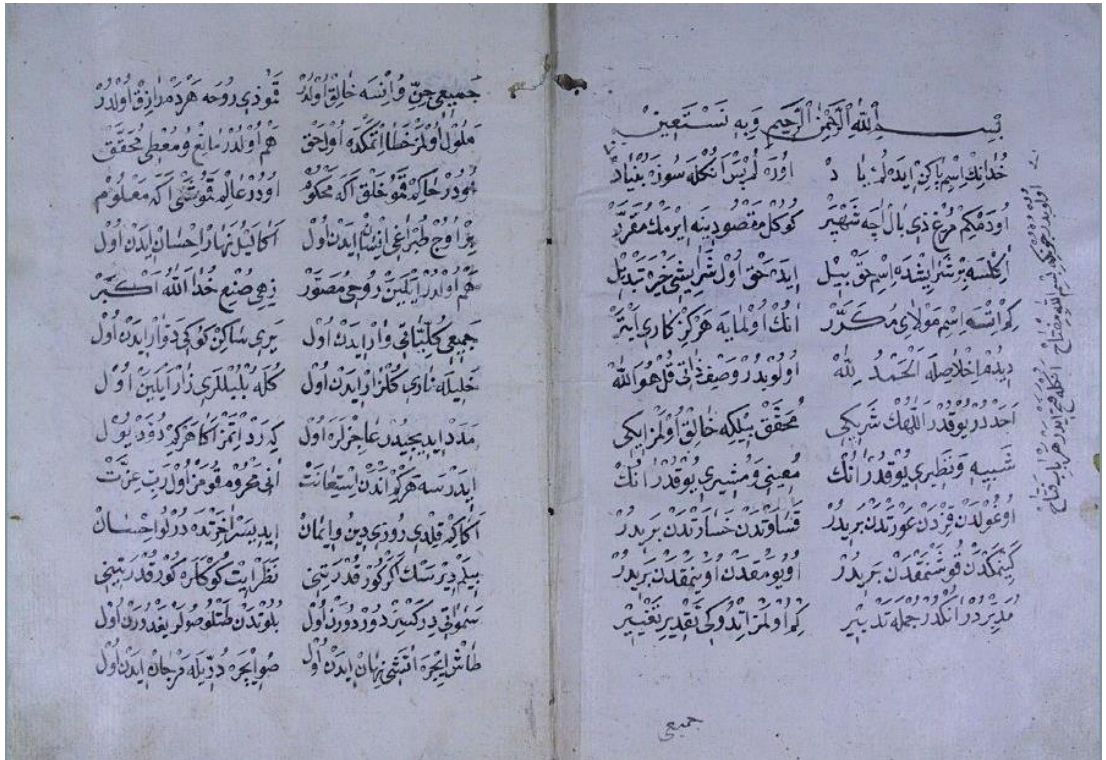 بِسْمِ اللّٰهِ الرَّحْمٰنِ الرَّحِيمِ وَبِهِ نَسْتَعِينُ
خُدَانِكْ اِسْمِ پَاكِنْ اِيدَه لُمْ يَا دْ اُورَه لُمْ بَسْ اَنُكْلَه سُوزَه بُنْيَادْ
اُودَمْكِمْ مُرْغِ ذِي بَالْ اَچَه شَهْپَرْ كُوكُلْ مَقْصُودِينَه اِيرْمَكْ مُقَرَّرْ
اَكِلْسَه بِرْ شَرْ اِيشْدَه اِسْمِ حَقْ بِيلْ اِيدَه حَقْ اُولْ شَرْ اِيشِي خَيْرَه تَبْدِيلْ
كِمْ اِتْسَه اِسْمِ مَوْلَايِ مُكَرَّرْ اَنُكْ اُولْمَايَه هَرْكِزْ كَارِي اَبْتَرْ
دِيدُمْ اِخْلَاصِلَه اَلْحَمْدُ لِلّٰهْ اُولُوبْدُرْ وَصْفِ ذَاتِي قُلْ هُوَ اللّٰهْ
اَحَدْدُرْ يُوقْدُرْ اَللّٰهُكْ شَرِيكِي مُحَقَّقْ بِيلْكِه خَالِقْ اُولْمَزْ اِيكِي
شَبِيهِ وَنَظِيرِي يُوقْدُرْ اَنُكْ مُعِينِي وَمُشِيرِي يُوقْدُرْ اَنُكْ
اُوغُولْدَنْ قِزْدَنْ عَوْرَتْدَنْ بَرِيدُرْ قَسَاوَتْدَنْ خَسَارَتْدَنْ بَرِيدُرْ
كَيِنْمَكْدَنْ قُوشَنْمَقْدَنْ بَرِيدُرْ اُويُومَقْدَنْ اُوسَنْمَقْدَنْ بَرِيدُرْ
مُدَبِّرْدُرْ اَنُكْدُرْ جُمْلَه تَدْبِيرْ كِمْ اُولْمَزْ اِتْدُوكِي تَقْدِيرِ تَغْيِيرْ
جميعى
جَمِيعِي جِنّ وُ اِنْسَه خَالِقْ اُولْدُرْ قَمُو ذِي رُوحَه هَرْدَمْ رَازِقْ اُولْدُرْ
مَلُولْ اُولْمَزْ خَطَا اِتْمَكْدَه اُولْ حَقْ هَمْ اُولْدُرْ مَانِعُ وُ مُعْطِي مُحَقَّقْ
اُودُرْ حَاكِمْ قَمُو خَلْقْ اَكَه مَحْكُومْ اُودُرْ عَالِمْ قَمُو شَيْ اَكَه مَعْلُومْ
بِرْ اَوُجْ طُپْرَاغِي اِنْسَانْ اِيدَنْ اُولْ اَكَا لَيْلُ نَهَارْ اِحْسَانْ اِيدَنْ اُولْ
هَمْ اُولْدُرْ اَيْلَيَنْ رُوحِي مُصَوَّرْ زِهِي صُنْعِ خُدَا اَللّٰهُ اَكْبَرْ
جَمِيعِي كُلِّيَّاتِي وَارْ اِيدَنْ اُولْ يَرِي سَاكِنْ كُوكِي دَوَّارْ اِيدَنْ اُولْ
خَلِيلَه نَارِي كُلْزَارْ اِيدَنْ اُولْ كُلَه بُلْبُلْلَرِي زَارْ اَيْلَيَنْ اُولْ
مَدَدْ اِيدِيجِيدُرْ عَاجِزْلَرَه اُولْ كِه رَدْ اِتْمَزْ اَكَا هَرْ كِمْ دُوتَه يُولْ
اِيدَرْسَه هَرْ كِمْ اَنْدَنْ اِسْتِعَانَتْ اَنِي مَحْرُومْ قُومَزْ اُولْ رَبِّ عِزَّتْ
اَكَا كِمْ قِلْدِي رُوزِي دِينُ وَاِيمَانْ اِيدِيسَرْ اٰخِرَتْدَه دُرْلُو اِحْسَانْ
بِيلَمْ دِيرْسَكْ اَكَرْ كُورْ قُدْرَتِنِي نَظَرْ اِيتْ كُوكْلَرَه كُورْ قُدْرَتِنِي
سَمٰوَاتِي دِرَكْسِزْ دُورْدُورَنْ اُولْ بُلُوتْدَنْ طَتْلُو صُولَرْ يَغْدُورَنْ اُولْ
طَاشْ اِيچْرَه اٰتَشِي نِهَانْ اِيدَنْ اُولْ صُو اِيچْرَه دُرِّيلَه مَرْجَانْ اِيدَنْ اُولْ